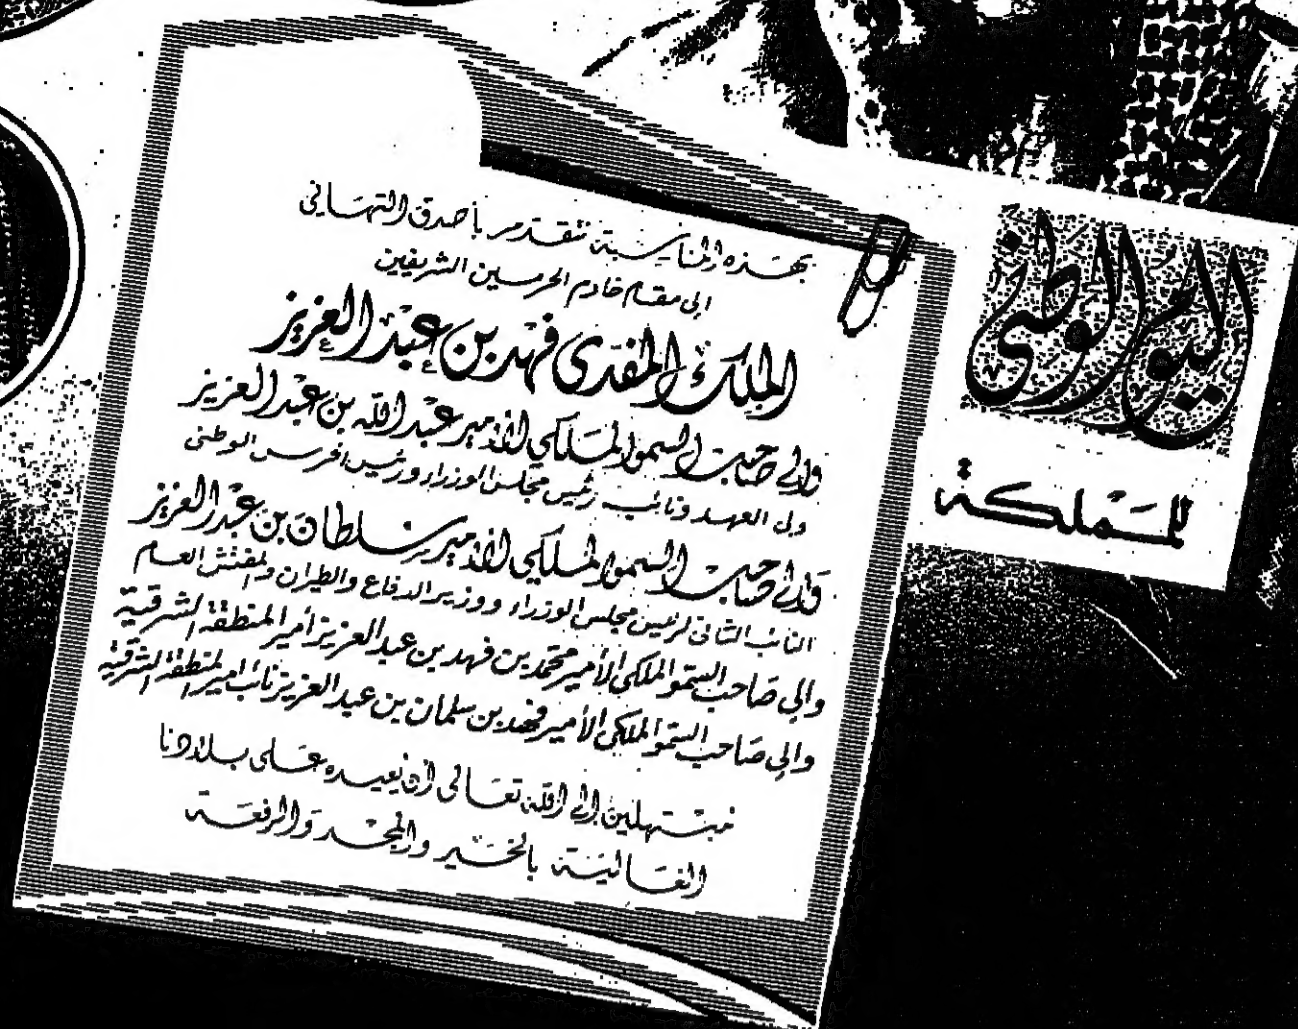 اليوم الوطني
للمملكة
بهذه المناسبة نتقدم بأصدق التهاني
إلى مقام خادم الحرمين الشريفين
الملك المفدى فهد بن عبد العزيز
وإلى صاحب السمو الملكي الأمير عبد الله بن عبد العزيز
ولي العهد ونائب رئيس مجلس الوزراء ورئيس الحرس الوطني
وإلى صاحب السمو الملكي الأمير سلطان بن عبد العزيز
النائب الثاني لرئيس مجلس الوزراء ووزير الدفاع والطيران والمفتش العام
وإلى صاحب السمو الملكي الأمير محمد بن فهد بن عبد العزيز أمير المنطقة الشرقية
وإلى صاحب السمو الملكي الأمير فهد بن سلمان بن عبد العزيز نائب أمير المنطقة الشرقية
مبتهلين إلى الله تعالى أن يعيده على بلادنا
الغالية بالخير والمجد والرفعة